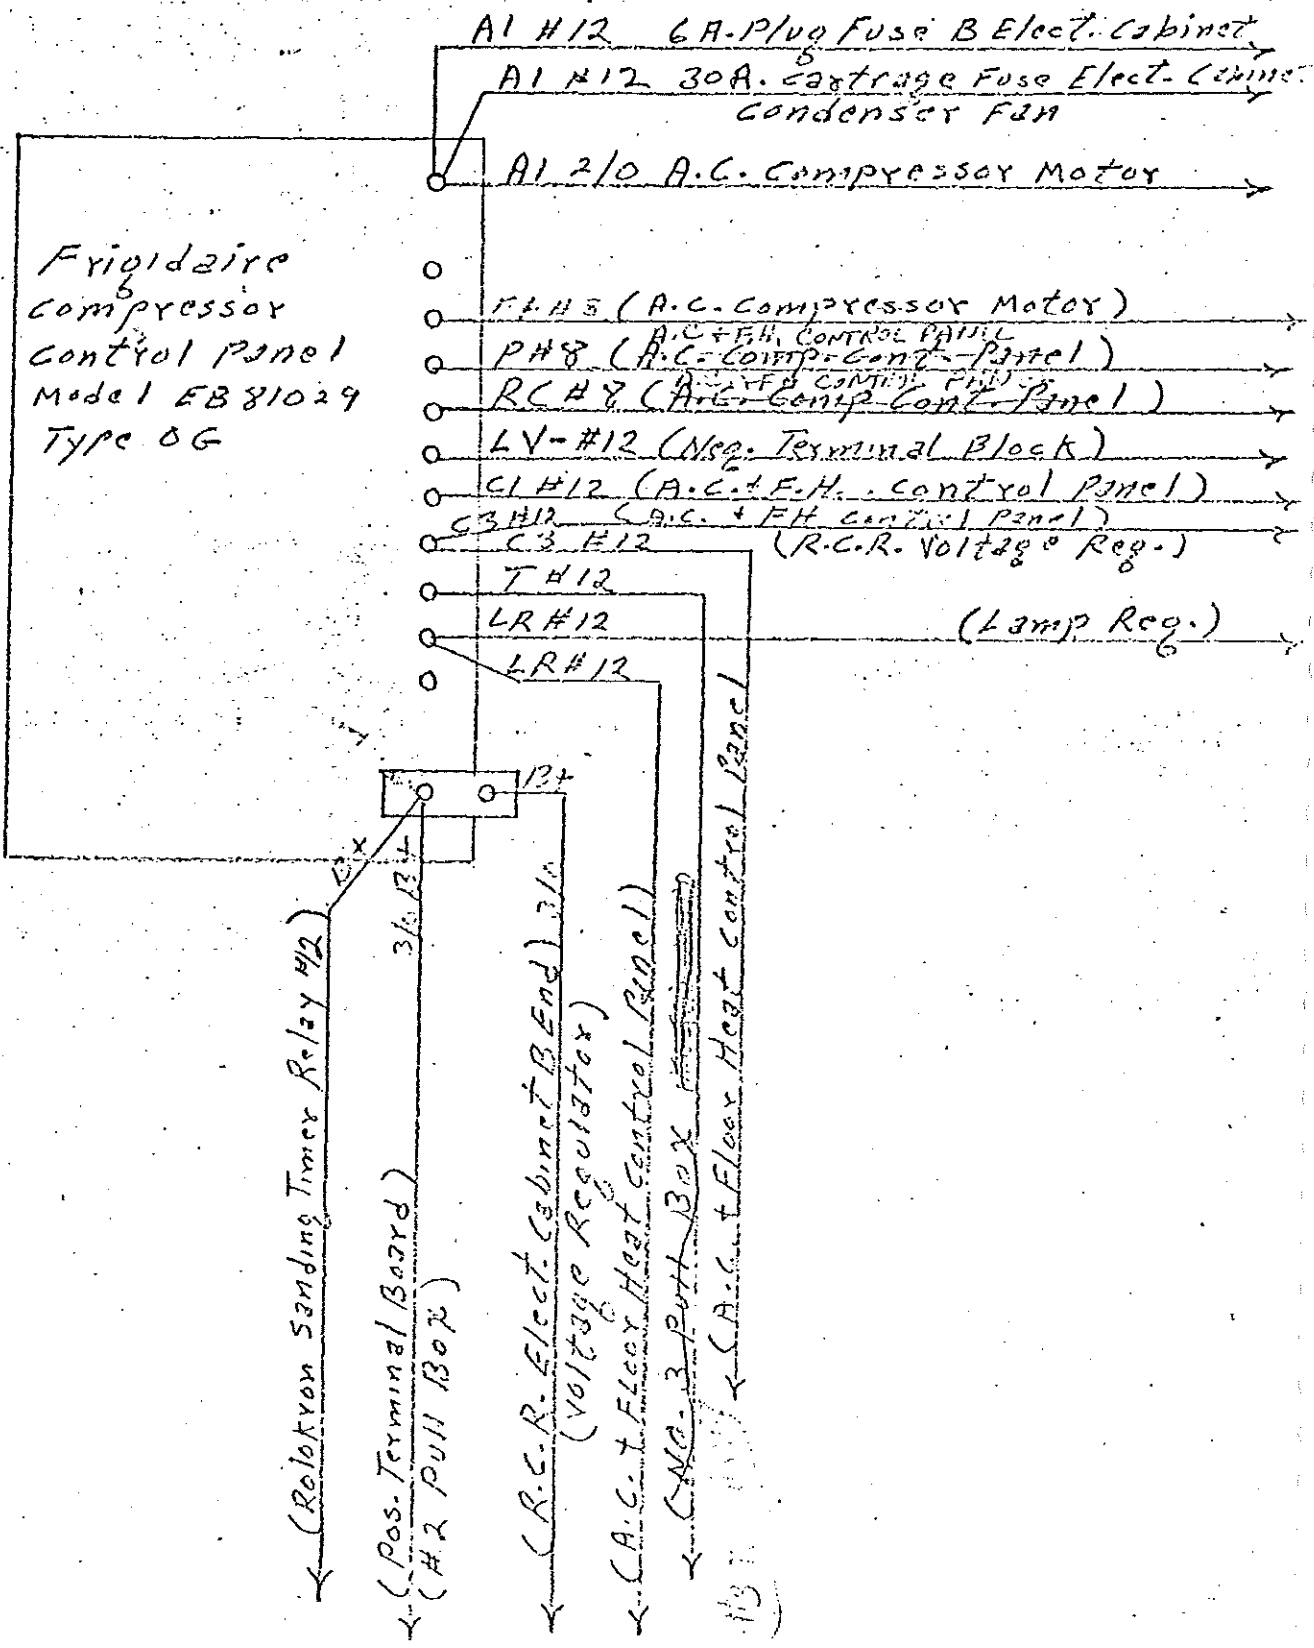 A1 #12 6 A. Plug Fuse B Elect. Cabinet
A1 #12 30A. Cartrage Fuse Elect.
Condenser Fan
A1 2/0 A.C. Compressor Motor
Frigidaire
Compressor
Control Panel
Model EB81029
Type OG
(A.C. Compressor Motor)
A.C + F.H. CONTROL PANEL
P#8 (A.C. Comp. Cont. Panel)
RC #8 (A.C. Comp Cont. Panel)
LV- #12 (Neg. Terminal Block)
C1 #12 (A.C. + F.H. Control Panel)
C3 #12 (A.C. + FH Control Panel)
C3 #12 (R.C.R. Voltage Reg.)
T #12
LR #12 (Lamp Reg.)
LR #12
B+
(Rolokron Sanding Timer Relay #12)
3/0 B+
(Pos. Terminal Board)
(#2 Pull Box)
(R.C.R. Elect. Cabinet B End) 3/0
(Voltage Regulator)
(A.C. + Floor Heat Control Panel)
(No. 3 Pull Box
(A.C. + Floor Heat Control Panel
#3